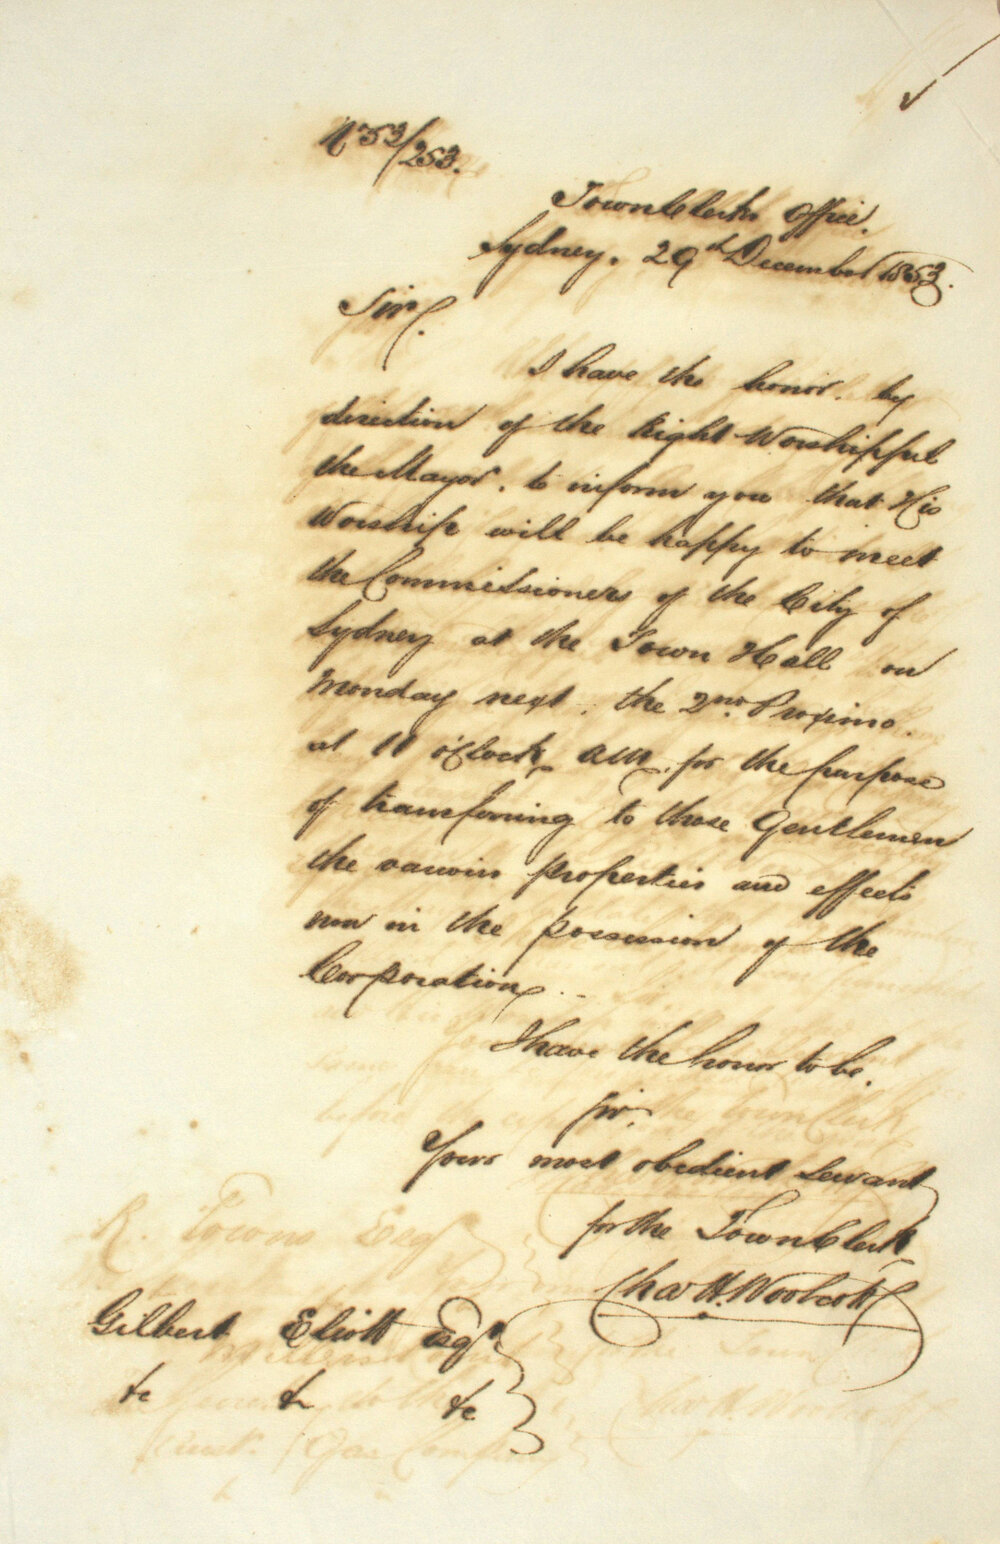 N 53/253.
Town Clerks Office.
Sydney. 29th December 1853.
Sir,
I have the honor. by
direction of the Right Worshipful
the Mayor. to inform you that His
Worship will be happy to meet
the Commissioners of the City of
Sydney at the Town Hall on
Monday next. the 2nd Proximo.
at 11 o'Clock AM. for the purpose
of transferring to those Gentlemen
the various properties and effects
now in the possession of the
Corporation.
I have the honor to be.
Sir.
Your most obedient Servant
for the Town Clerk
Chas H. Woolcott
R. Towns Esqr
Gilbert Eliott Esqr
&c &c &c